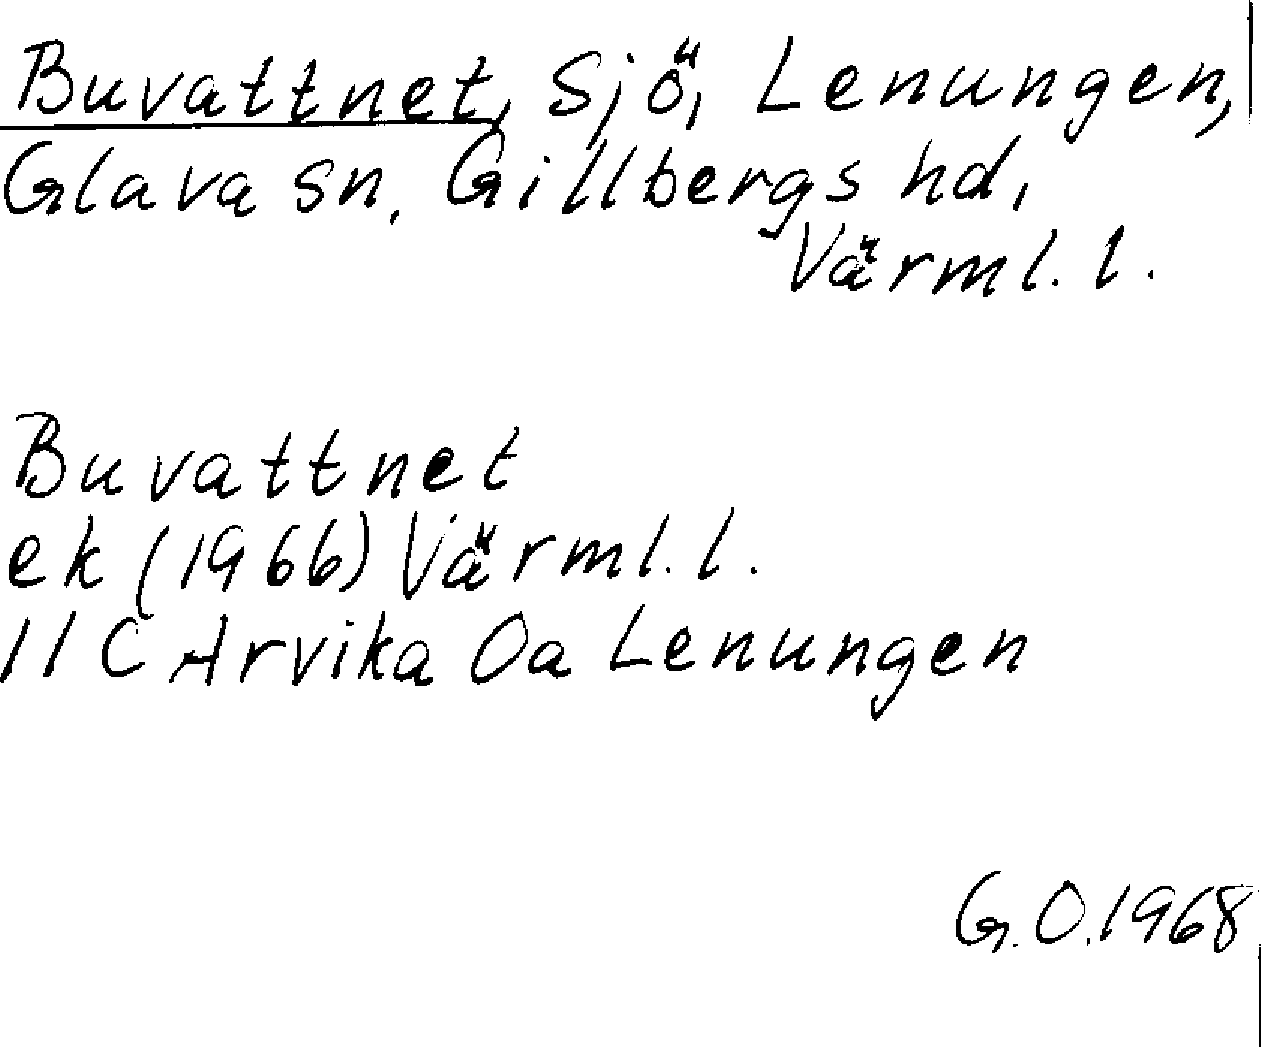 Buvattnet, sjö, Lenungen,
Glava sn, Gillbergs hd,
Värml. l.
Buvattnet
ek (1966) Värml. l.
11 C Arvika 0a Lenungen
G.O.1968